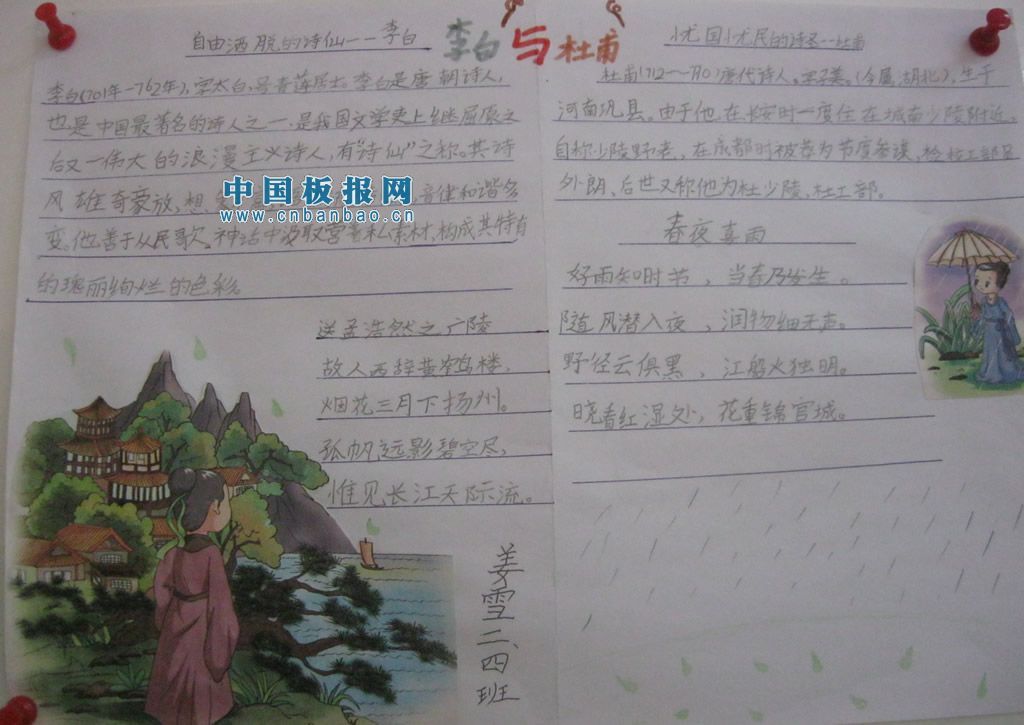 李白与杜甫
自由洒脱的诗仙——李白
李白(701年—762年),字太白,号青莲居士。李白是唐朝诗人,
也是中国最著名的诗人之一.是我国文学史上继屈原之
后又一伟大的浪漫主义诗人,有"诗仙"之称。其诗
风雄奇豪放,想 音律和谐多
变。他善于从民歌、神话中汲取营养和素材,构成其特有
的瑰丽绚烂的色彩。
中国板报网
www.cnbanbao.cn
送孟浩然之广陵
故人西辞黄鹤楼,
烟花三月下扬州。
孤帆远影碧空尽,
惟见长江天际流。
姜雪二、四班
忧国忧民的诗圣--杜甫
杜甫(712——770)唐代诗人。字子美。(今属湖北),生于
河南巩县。由于他在长安时一度住在城南少陵附近,
自称少陵野老,在成都时被荐为节度参谋、检校工部员
外朗、后世又称他为杜少陵、杜工部。
春夜喜雨
好雨知时节,当春乃发生。
随风潜入夜,润物细无声。
野径云俱黑,江船火独明。
晓看红湿处,花重锦官城。